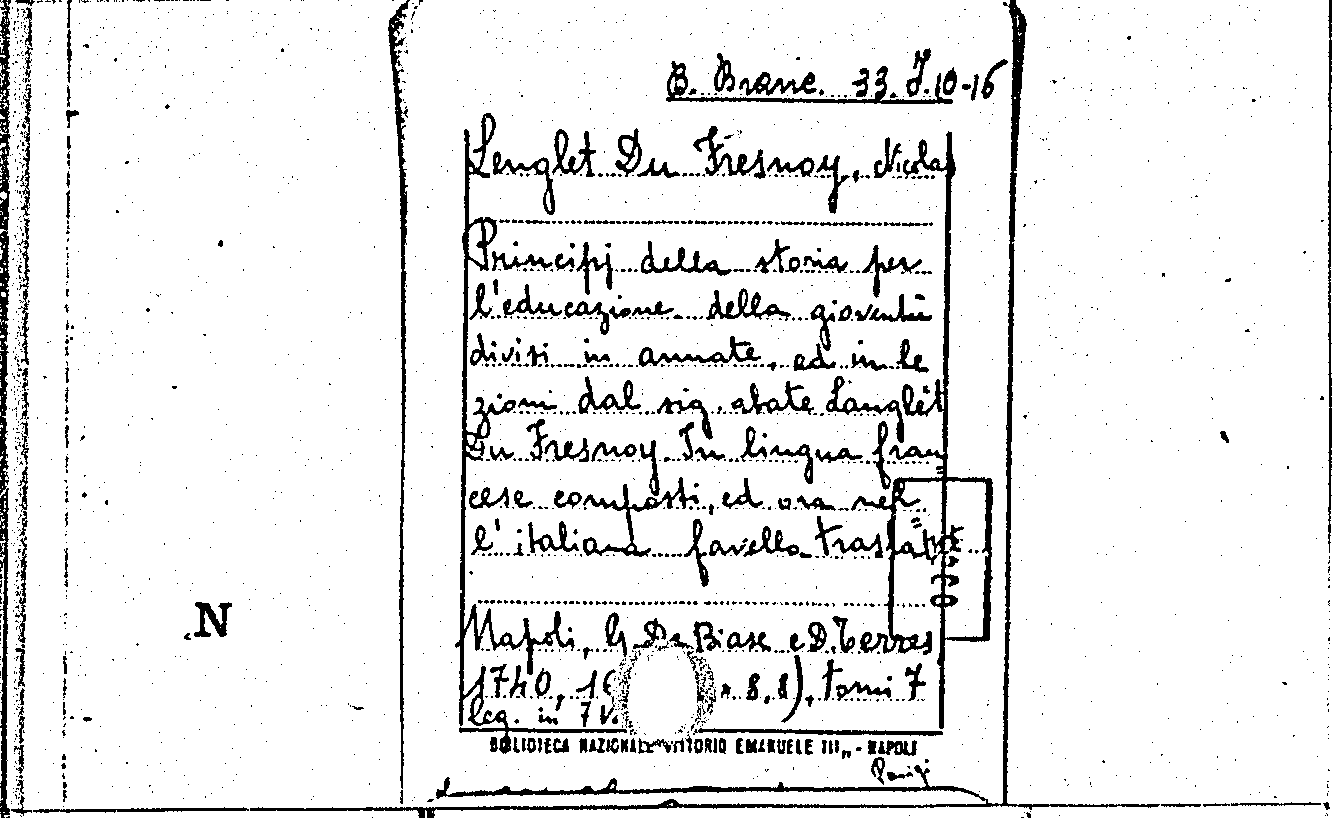 B. Branc. 33. J.10-16
Lenglet Du Fresnoy, Nicolas
Principj della storia per
l'educazione della gioventù
divisi in annate, ed in le
zioni dal sig. abate Langlèt
Du Fresnoy. In lingua fran=
cese composti, ed ora nel=
l'italiana favella traslati
N
Napoli, G. De Biase e D. Terres
1740, 16 8,8), tomi 7
leg. in 7 v.
BIBLIOTECA NAZIONALE "VITTORIO EMANUELE III" - NAPOLI